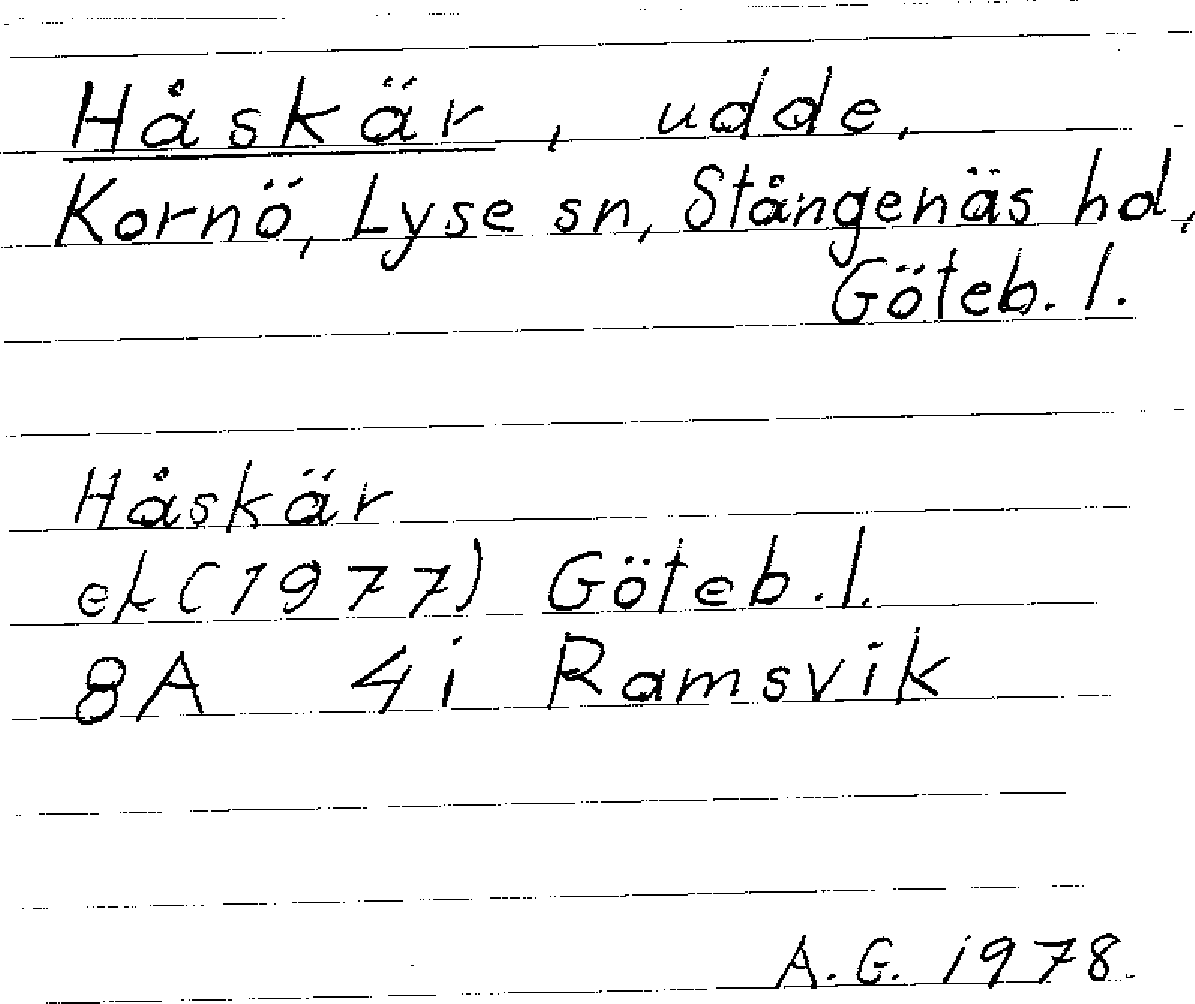 Håskär, udde,
Kornö, Lyse sn, Stångenäs hd,
Göteb. l.
Håskär
ek (1977) Göteb. l.
8A 4i Ramsvik
A. G. 1978.